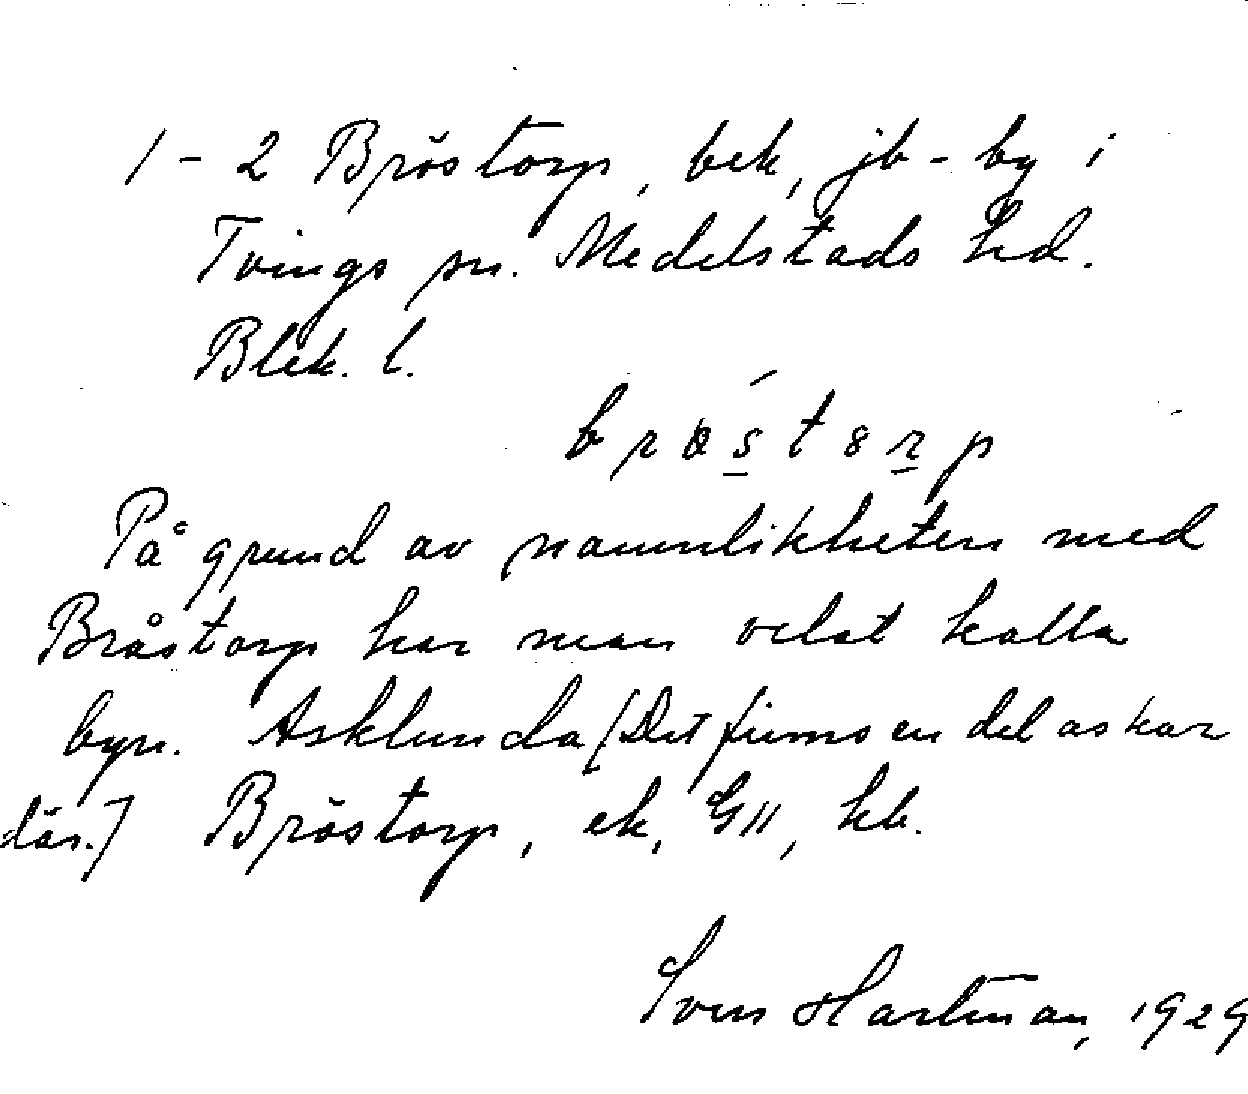 1-2 Bröstorp, bek, jb-by i
Tvings sn. Medelstads hd.
Blek. l.
På grund av namnlikheten med
Bråstorp har man velat kalla
byn. Asklunda [Det finns en del askar
där.] Bröstorp, ek, GII, kb.
Sven Hartman, 1929